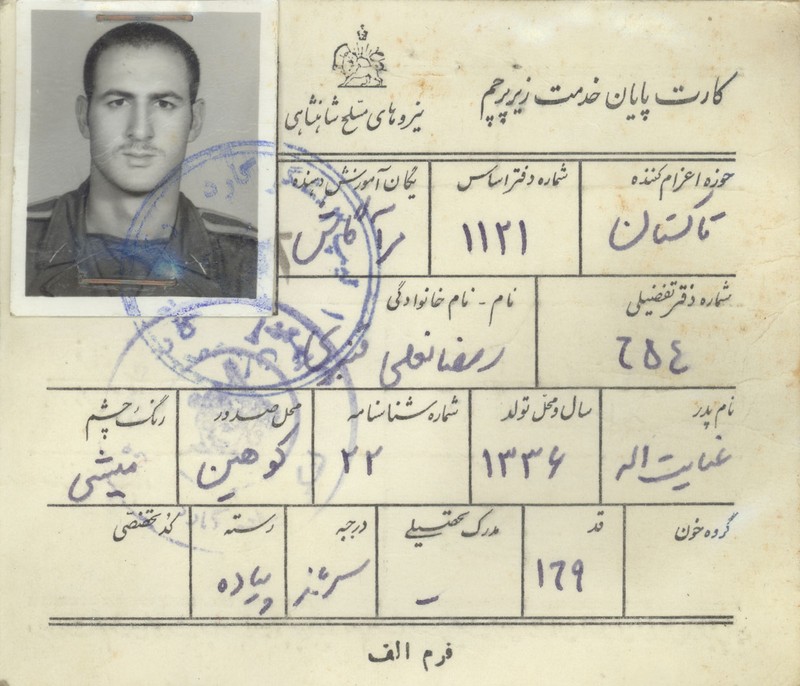 کارت پایان خدمت زیر پرچم
نیروهای مسلح شاهنشاهی
حوزه اعزام کننده
شماره دفتر اساس
یگان آموزش دهنده
تاکستان
۱۱۲۱
شماره دفتر تفضیلی
نام - نام خانوادگی
٦٥٤
رمضانعلی
نام پدر
سال و محل تولد
شماره شناسنامه
محل صدور
رنگ چشم
عنایت اله
۱۳۳۶
۲۲
کوهین
میشی
گروه خون
قد
مدرک تحصیلی
درجه
رسته
کد تخصصی
١٦٩
-
سرباز
پیاده
فرم الف